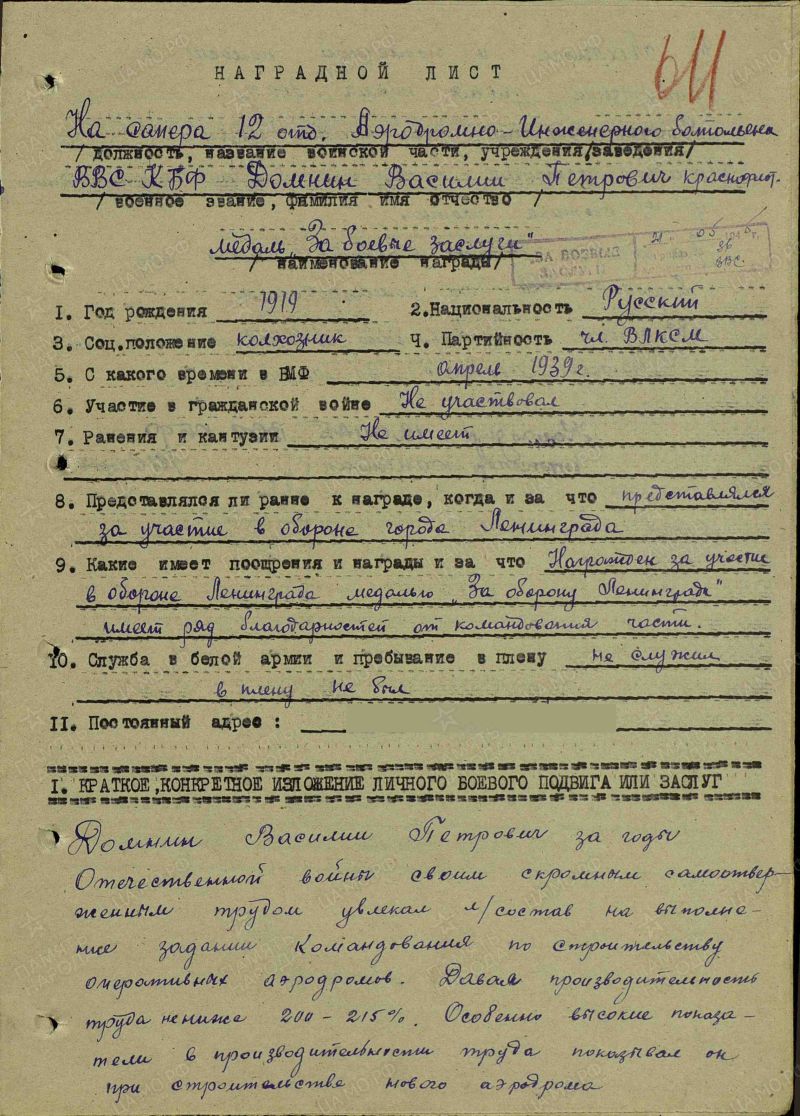 611
НАГРАДНОЙ ЛИСТ
На сапера 12 отд. Аэродромно-Инженерного батольена
/ должность, название воинской части, учреждения/заведения/
ВВС КБФ Домнин Василии Петрович краснофлот.
/ военное звание, фамилия имя отчество /
медаль „За боевые заслуги"
/ наименование награды /
1. Год рождения 1919 2. Национальность Русский
3. Соц.положение колхозник 4. Партийность чл. ВЛКСМ
5. С какого времени в ВМФ апрель 1939 г.
6. Участие в гражданской войне Не участвовал
7. Ранения и кантузии Не имеет
8. Представлялся ли ранне к награде, когда и за что представлялся
за участие в обороне города Ленинграда
9. Какие имеет поощрения и награды и за что Награжден за участие
в обороне Ленинграда медалью „За оборону Ленинграда"
имеет ряд благодарностей от командования части.
10. Служба в белой армии и пребывание в плену не служил
в плену не был
11. Постоянный адрес :
I. КРАТКОЕ,КОНКРЕТНОЕ ИЗЛОЖЕНИЕ ЛИЧНОГО БОЕВОГО ПОДВИГА ИЛИ ЗАСЛУГ
Домнин Василии Петрович за годы
Отечественной войны своим скромным самоотвер-
женным трудом увлекал л/состав на выполне-
ние задании Командования по строительству
оперативных аэродромов. Давая производительность
труда не ниже 200 - 215%. Особенно высокие показа-
тели в производительности труда показывал он
при строительстве нового аэродрома